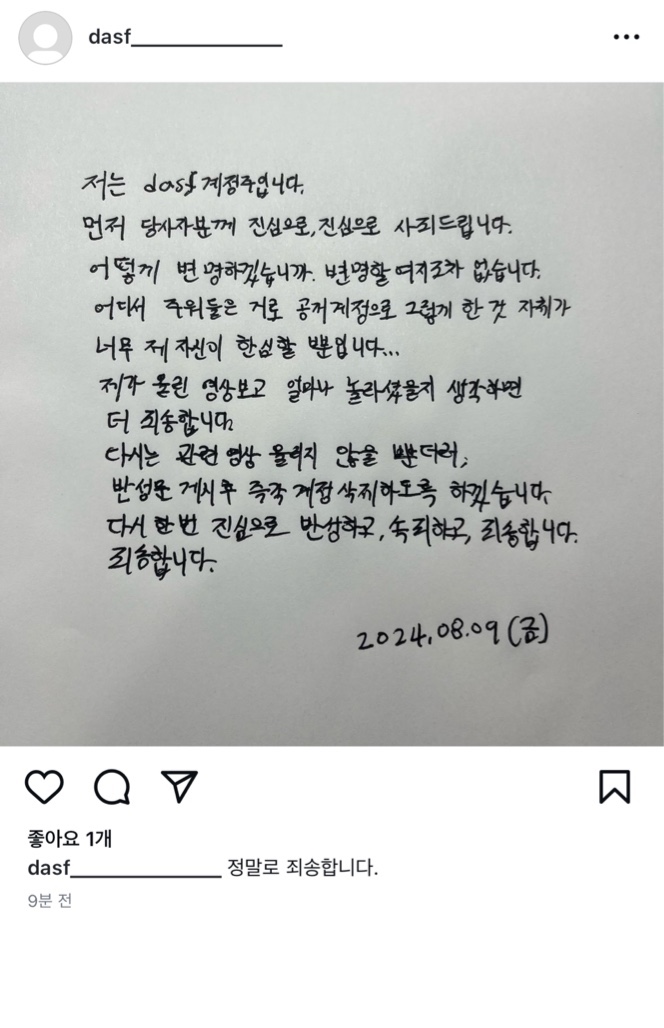 dasf_______________
저는 dasf 계정주입니다.
먼저 당사자분께 진심으로, 진심으로 사죄드립니다.
어떻게 변명하겠습니까. 변명할 여지조차 없습니다.
어디서 주워들은 거로 공개계정으로 그렇게 한 것 자체가
너무 제 자신이 한심할 뿐입니다...
제가 올린 영상보고 얼마나 놀라셨을지 생각하면
더 죄송합니다
다시는 관련 영상 올리지 않을 뿐더러,
반성문 게시 후 즉각 계정 삭제하도록 하겠습니다
다시 한번 진심으로 반성하고, 속죄하고, 죄송합니다.
죄송합니다.
2024.08.09 (금)
좋아요 1개
dasf_______________ 정말로 죄송합니다.
9분 전